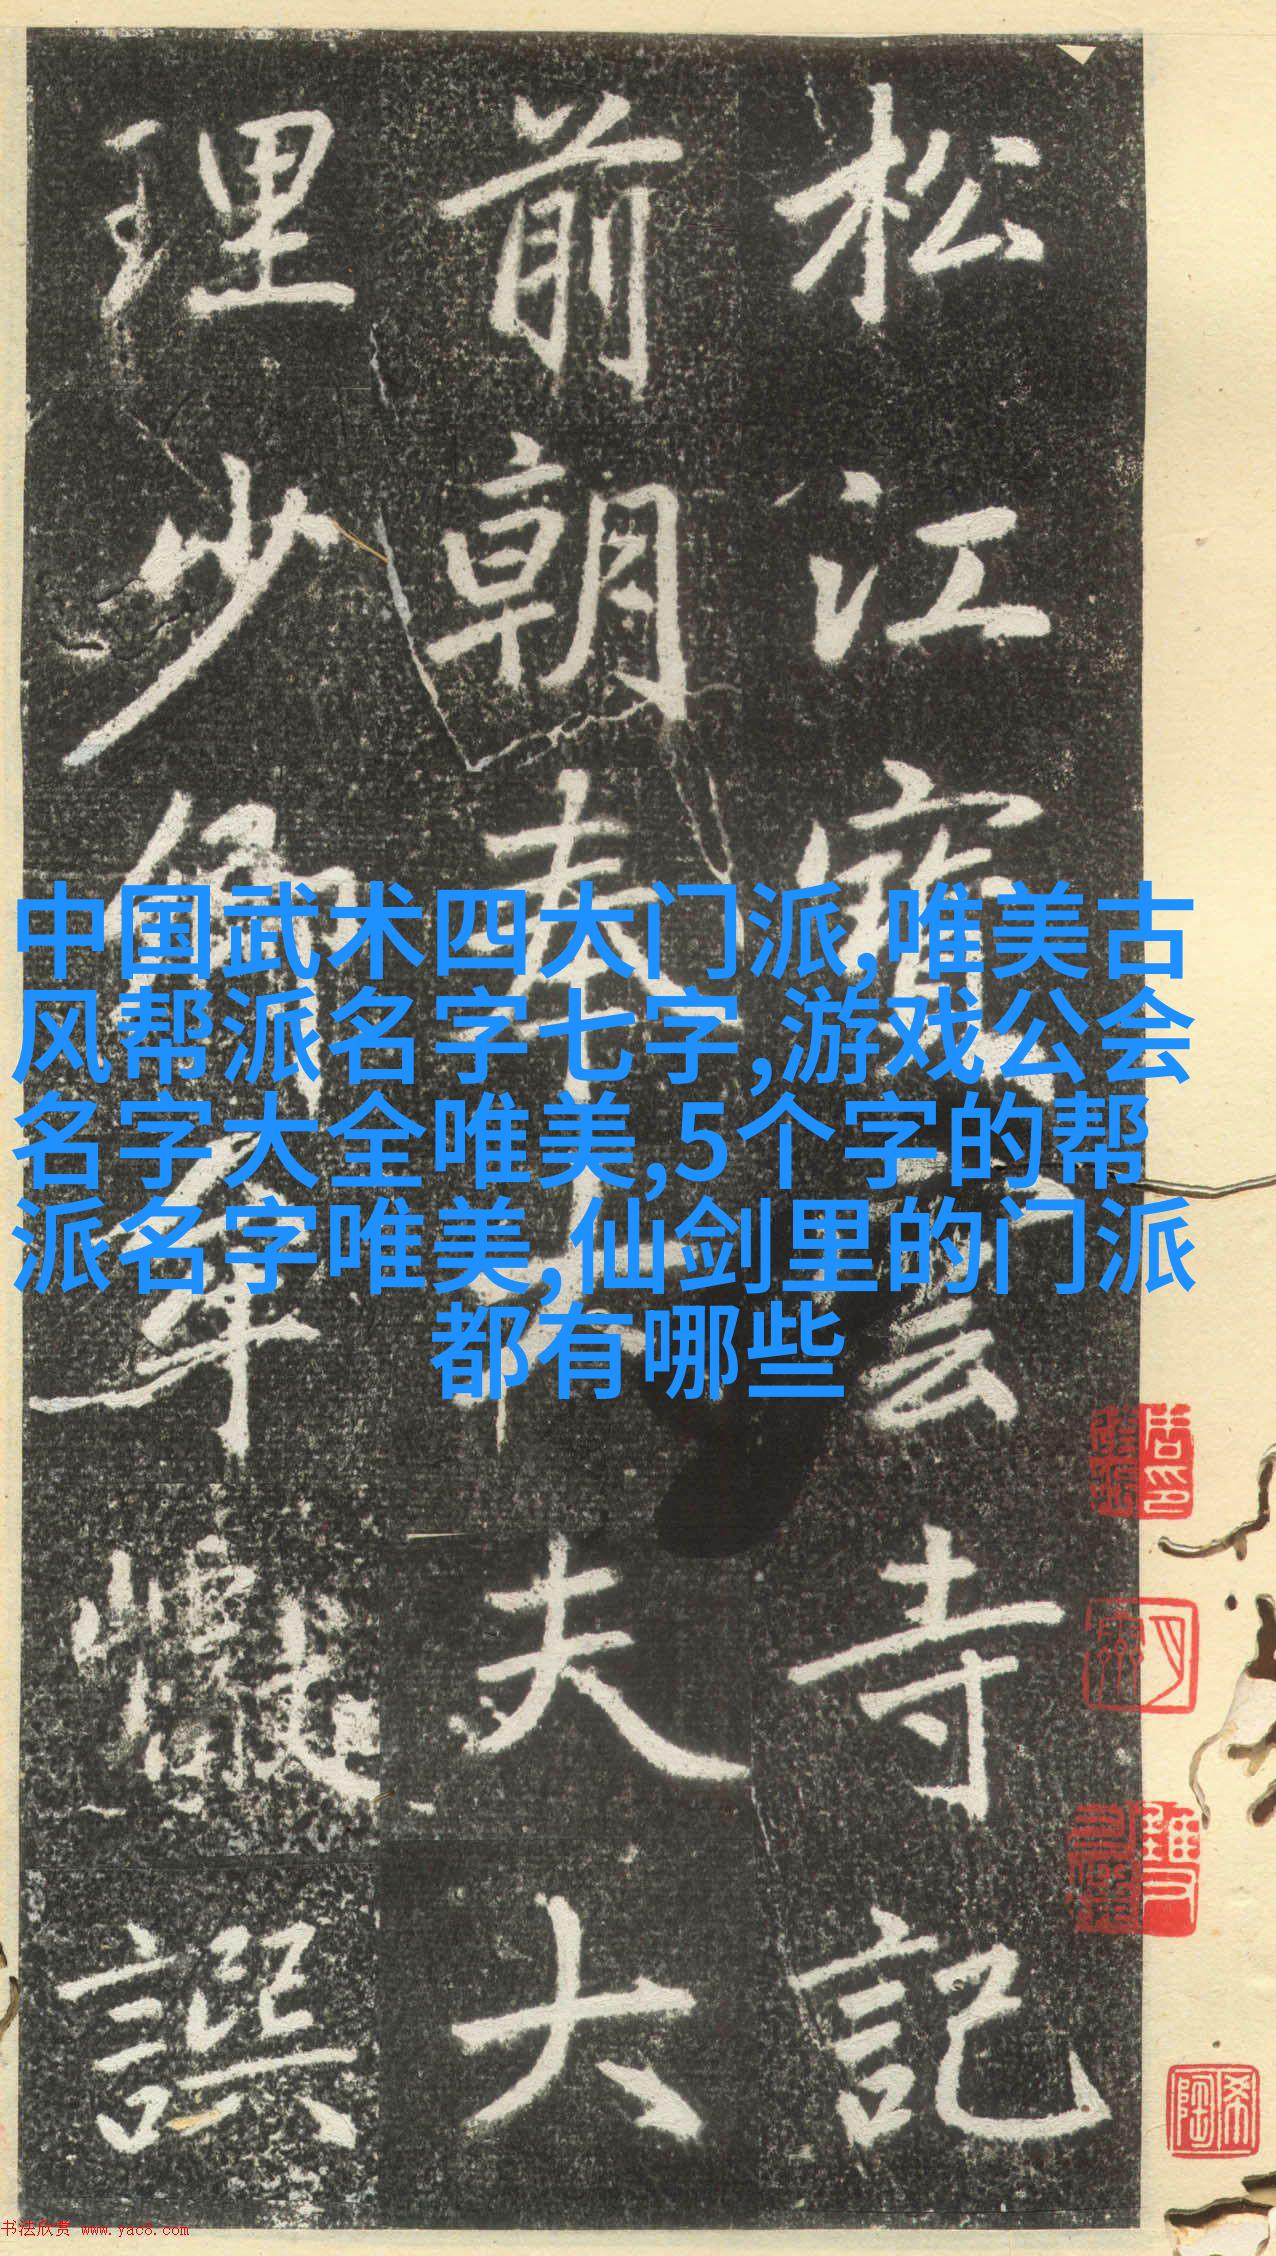 松江寶雲寺記
前朝奉大夫大
理少卿牟巘譔
中国武术四大门派,唯美古
风帮派名字七字,游戏公会
名字大全唯美,5个字的帮
派名字唯美,仙剑里的门派
都有哪些
希陶
书法欣赏 www.yac8.com